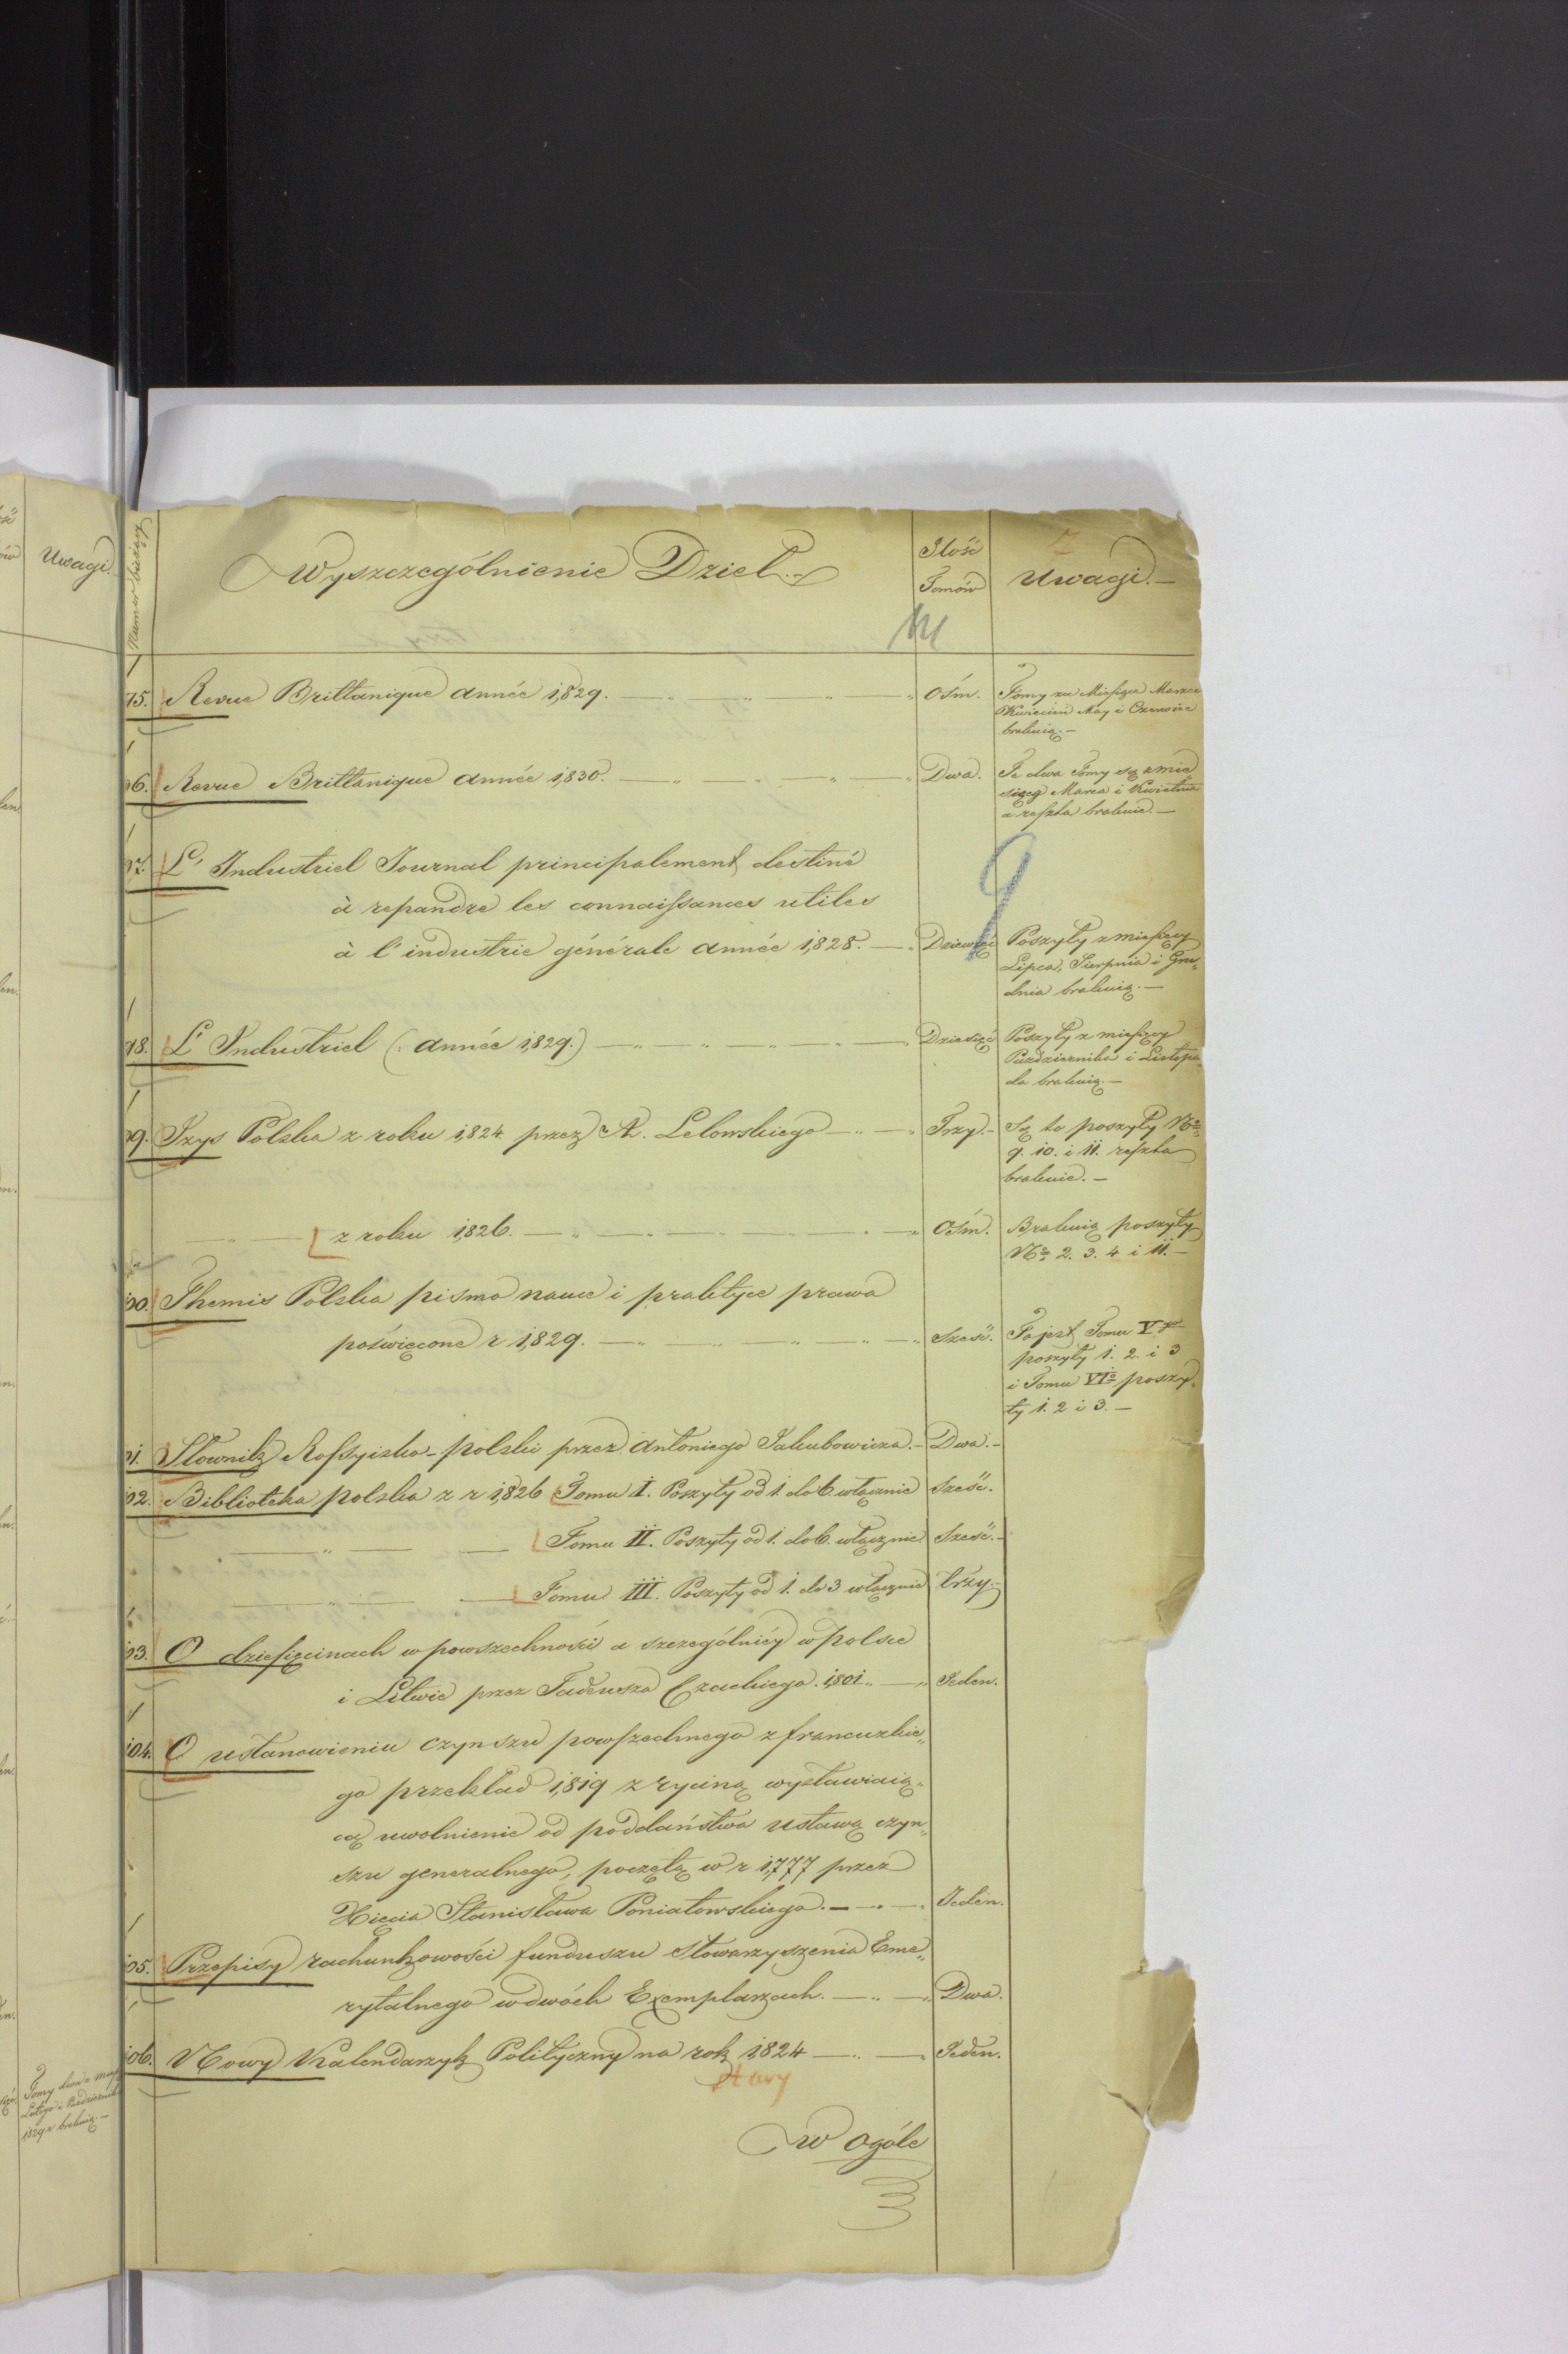 Uwagi.
Numer bieżący
Wyszczególnienie Dzieł.
Ilość
Tomów
7
Uwagi.—
95. Revue Brittanique année 1,829. Ośm. Tomy za Miesiące Marzec
Kwiecień May i Czerwiec
brakuią.—
96. Revue Brittanique année 1,830. Dwa. Te dwa Tomy są z mie„
sięcy Marca i Kwietnia
a reszta brakuie.—
97. L' Industriel Journal principalement destiné
à repandre les connaissances utiles
à l' industrie générale année 1,828. Dziewięć Poszyty z miesięcy
Lipca, Sierpnia i Gru„
dnia brakuią.—
98. L' Industriel (: année 1,829.) Dziesięć Poszyty z miesięcy
Pazdziernika i Listopa„
da brakuią.—
99. Izys Polska z roku 1,824 przez A. Lelowskiego Trzy.— Są to poszyty No
9. 10. i 11. reszta
brakuie.—
z roku 1,826. Ośm. Brakuią poszyty
No 2. 3. 4 i 11.—
100. Themis Polska pismo nauce i praktyce prawa
poświęcone r 1,829. Sześć. To jest Tomu V
poszyty 1. 2. i 3
i Tomu VIo poszy„
ty 1. 2 i 3.—
101. Słownik Rossyisko-polski przez Antoniego Jakubowicza.— Dwa.—
102. Biblioteka polska z r 1,826 Tomu I. Poszyty od 1. do 6. włącznie Sześć.
Tomu II. Poszyty od 1. do 6. włącznie Sześć.—
Tomu III. Poszyty od 1. do 3 włącznie trzy.—
103. O dziesięcinach w powszechności a szczególniéy w Polsce
i Litwie przez Tadeusza Czackiego. 1,801. Jeden.
104. O ustanowieniu czynszu powszechnego z francuzkie„
go przekład 1,819 z ryciną wystawiaią„
cą uwolnienie od poddaństwa ustawą czyn„
szu generalnego, poczętą w r 1,777 przez
Xięcia Stanisława Poniatowskiego. Jeden.
105. Przepisy rachunkowości funduszu Stowarzyszenia Eme„
rytalnego w dwóch Exemplarzach. Dwa.
106. Nowy Kalendarzyk Polityczny na rok 1,824 Jeden.
stary
Tomy dwa z
Lutego i Pazdziernika
1829 r brakuią.—
w ogóle